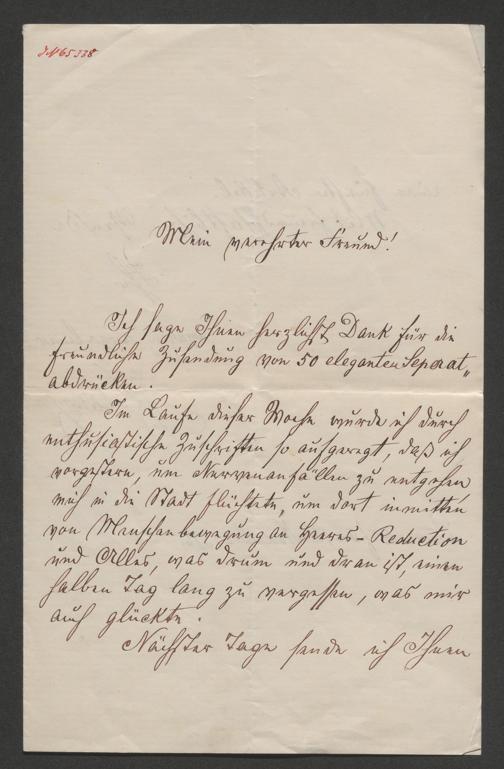 J.N 65338
Mein verehrter Freund!
Ich sage Ihnen herzlichst Dank für die
freundliche Zusendung von 50 eleganten Seperat„
abdrücken.
Im Laufe dieser Woche wurde ich durch
enthusiastische Zuschriften so aufgeregt, daß ich
vorgestern, um Nervenanfällen zu entgehen,
mich in die Stadt flüchtete, um dort inmitten
von Menschenbewegung an Heeres-Reduction
und Alles, was drum und dran ist, einen
halben Tag lang zu vergessen, was mir
auch glückte.
Nächster Tage sende ich Ihnen